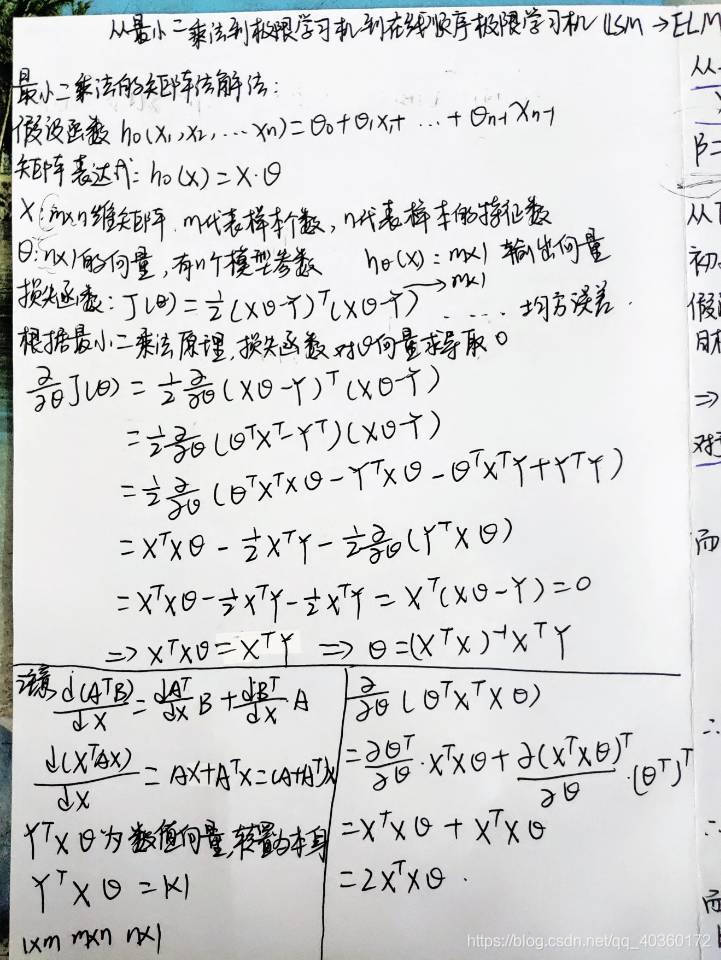 从最小二乘法到极限学习机到在线顺序极限学习机 LSM → ELM
最小二乘法的矩阵法解法:
假设函数 h₀(x₁,x₂,…xn)=θ₀+θ₁x₁+ … + θn-1 xn-1
矩阵表达式: h₀(x)=X·θ
X:m×n维矩阵.m代表样本个数,n代表样本的特征数
θ:n×1的向量,有n个模型参数 hθ(x):m×1 输出向量
损失函数: J(θ)=½(Xθ-Y)ᵀ(Xθ-Y) → m×1 .... 均方误差.
根据最小二乘法原理,损失函数对θ向量求导取0
∂/∂θ J(θ) = ½ ∂/∂θ (Xθ-Y)ᵀ(Xθ-Y)
=½ ∂/∂θ (θᵀXᵀ-Yᵀ)(Xθ-Y)
=½ ∂/∂θ (θᵀXᵀXθ-YᵀXθ-θᵀXᵀY+YᵀY)
=XᵀXθ - ½XᵀY - ½ ∂/∂θ (YᵀXθ)
=XᵀXθ-½XᵀY-½XᵀY = Xᵀ(Xθ-Y)=0
⇒ XᵀXθ=XᵀY ⇒ θ=(XᵀX)⁻¹XᵀY
注意 d(AᵀB)/dX = dAᵀ/dX B + dBᵀ/dX A
d(XᵀAX)/dX = AX+AᵀX=(A+Aᵀ)X
YᵀXθ为数值向量,转置为本身
YᵀXθ=1×1
1×m m×n n×1
∂/∂θ (θᵀXᵀXθ)
=∂θᵀ/∂θ · XᵀXθ + ∂(XᵀXθ)ᵀ/∂θ · (θᵀ)ᵀ
=XᵀXθ + XᵀXθ
=2XᵀXθ.
从
β=
从
初
假设
目标
⇒
对
而
∴
∴
而
https://blog.csdn.net/qq_40360172